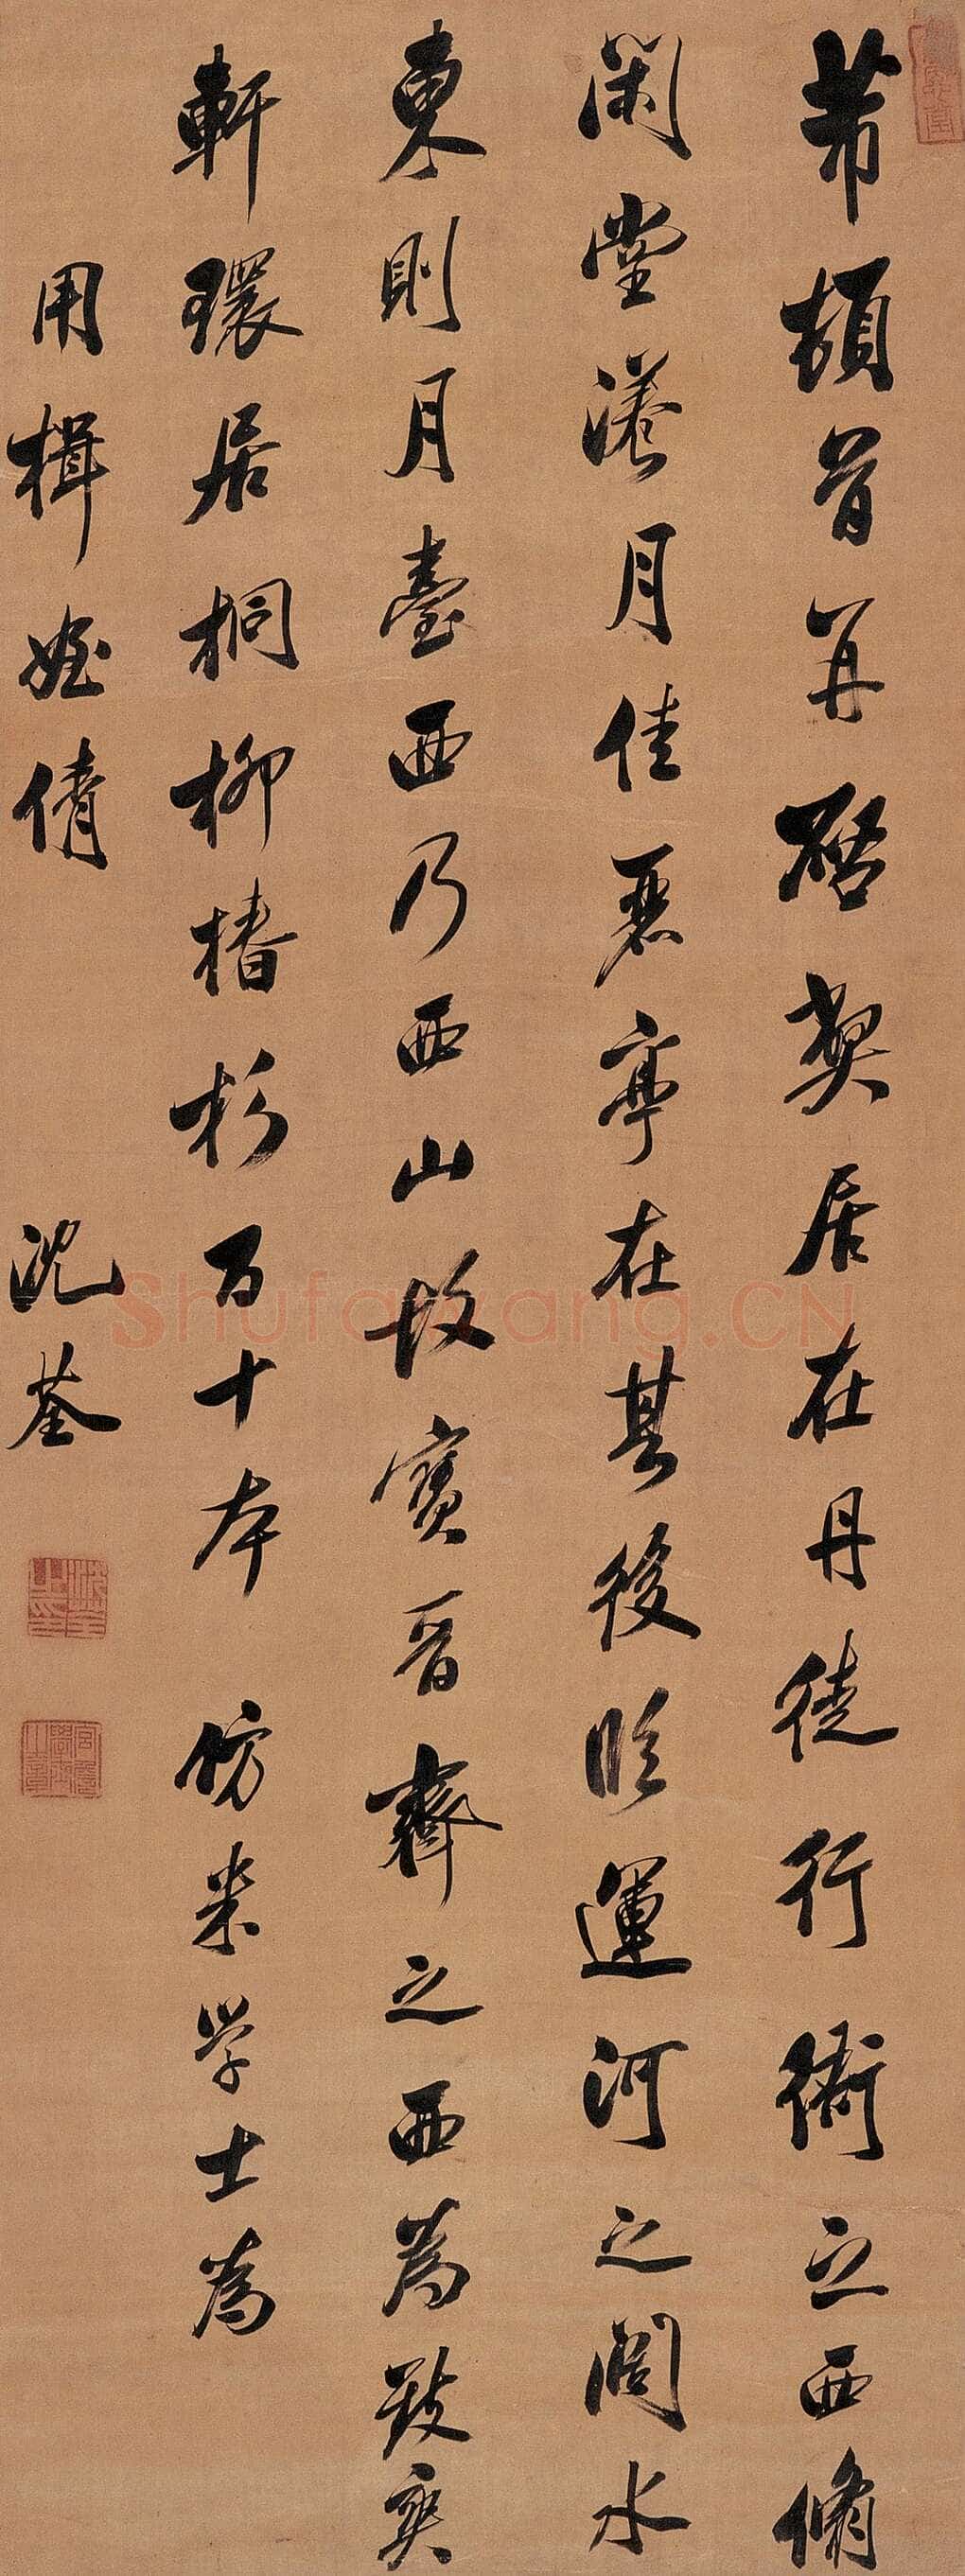 芾頓首再啓弊居在丹徒行衙之西脩
閑堂漾月佳麗亭在其後臨運河之闊水
東則月臺西乃西山故寶晉齋之西為致爽
軒環居桐柳椿杉百十本 仿米学士為
用楫姪倩 沈荃
Shufawang.CN